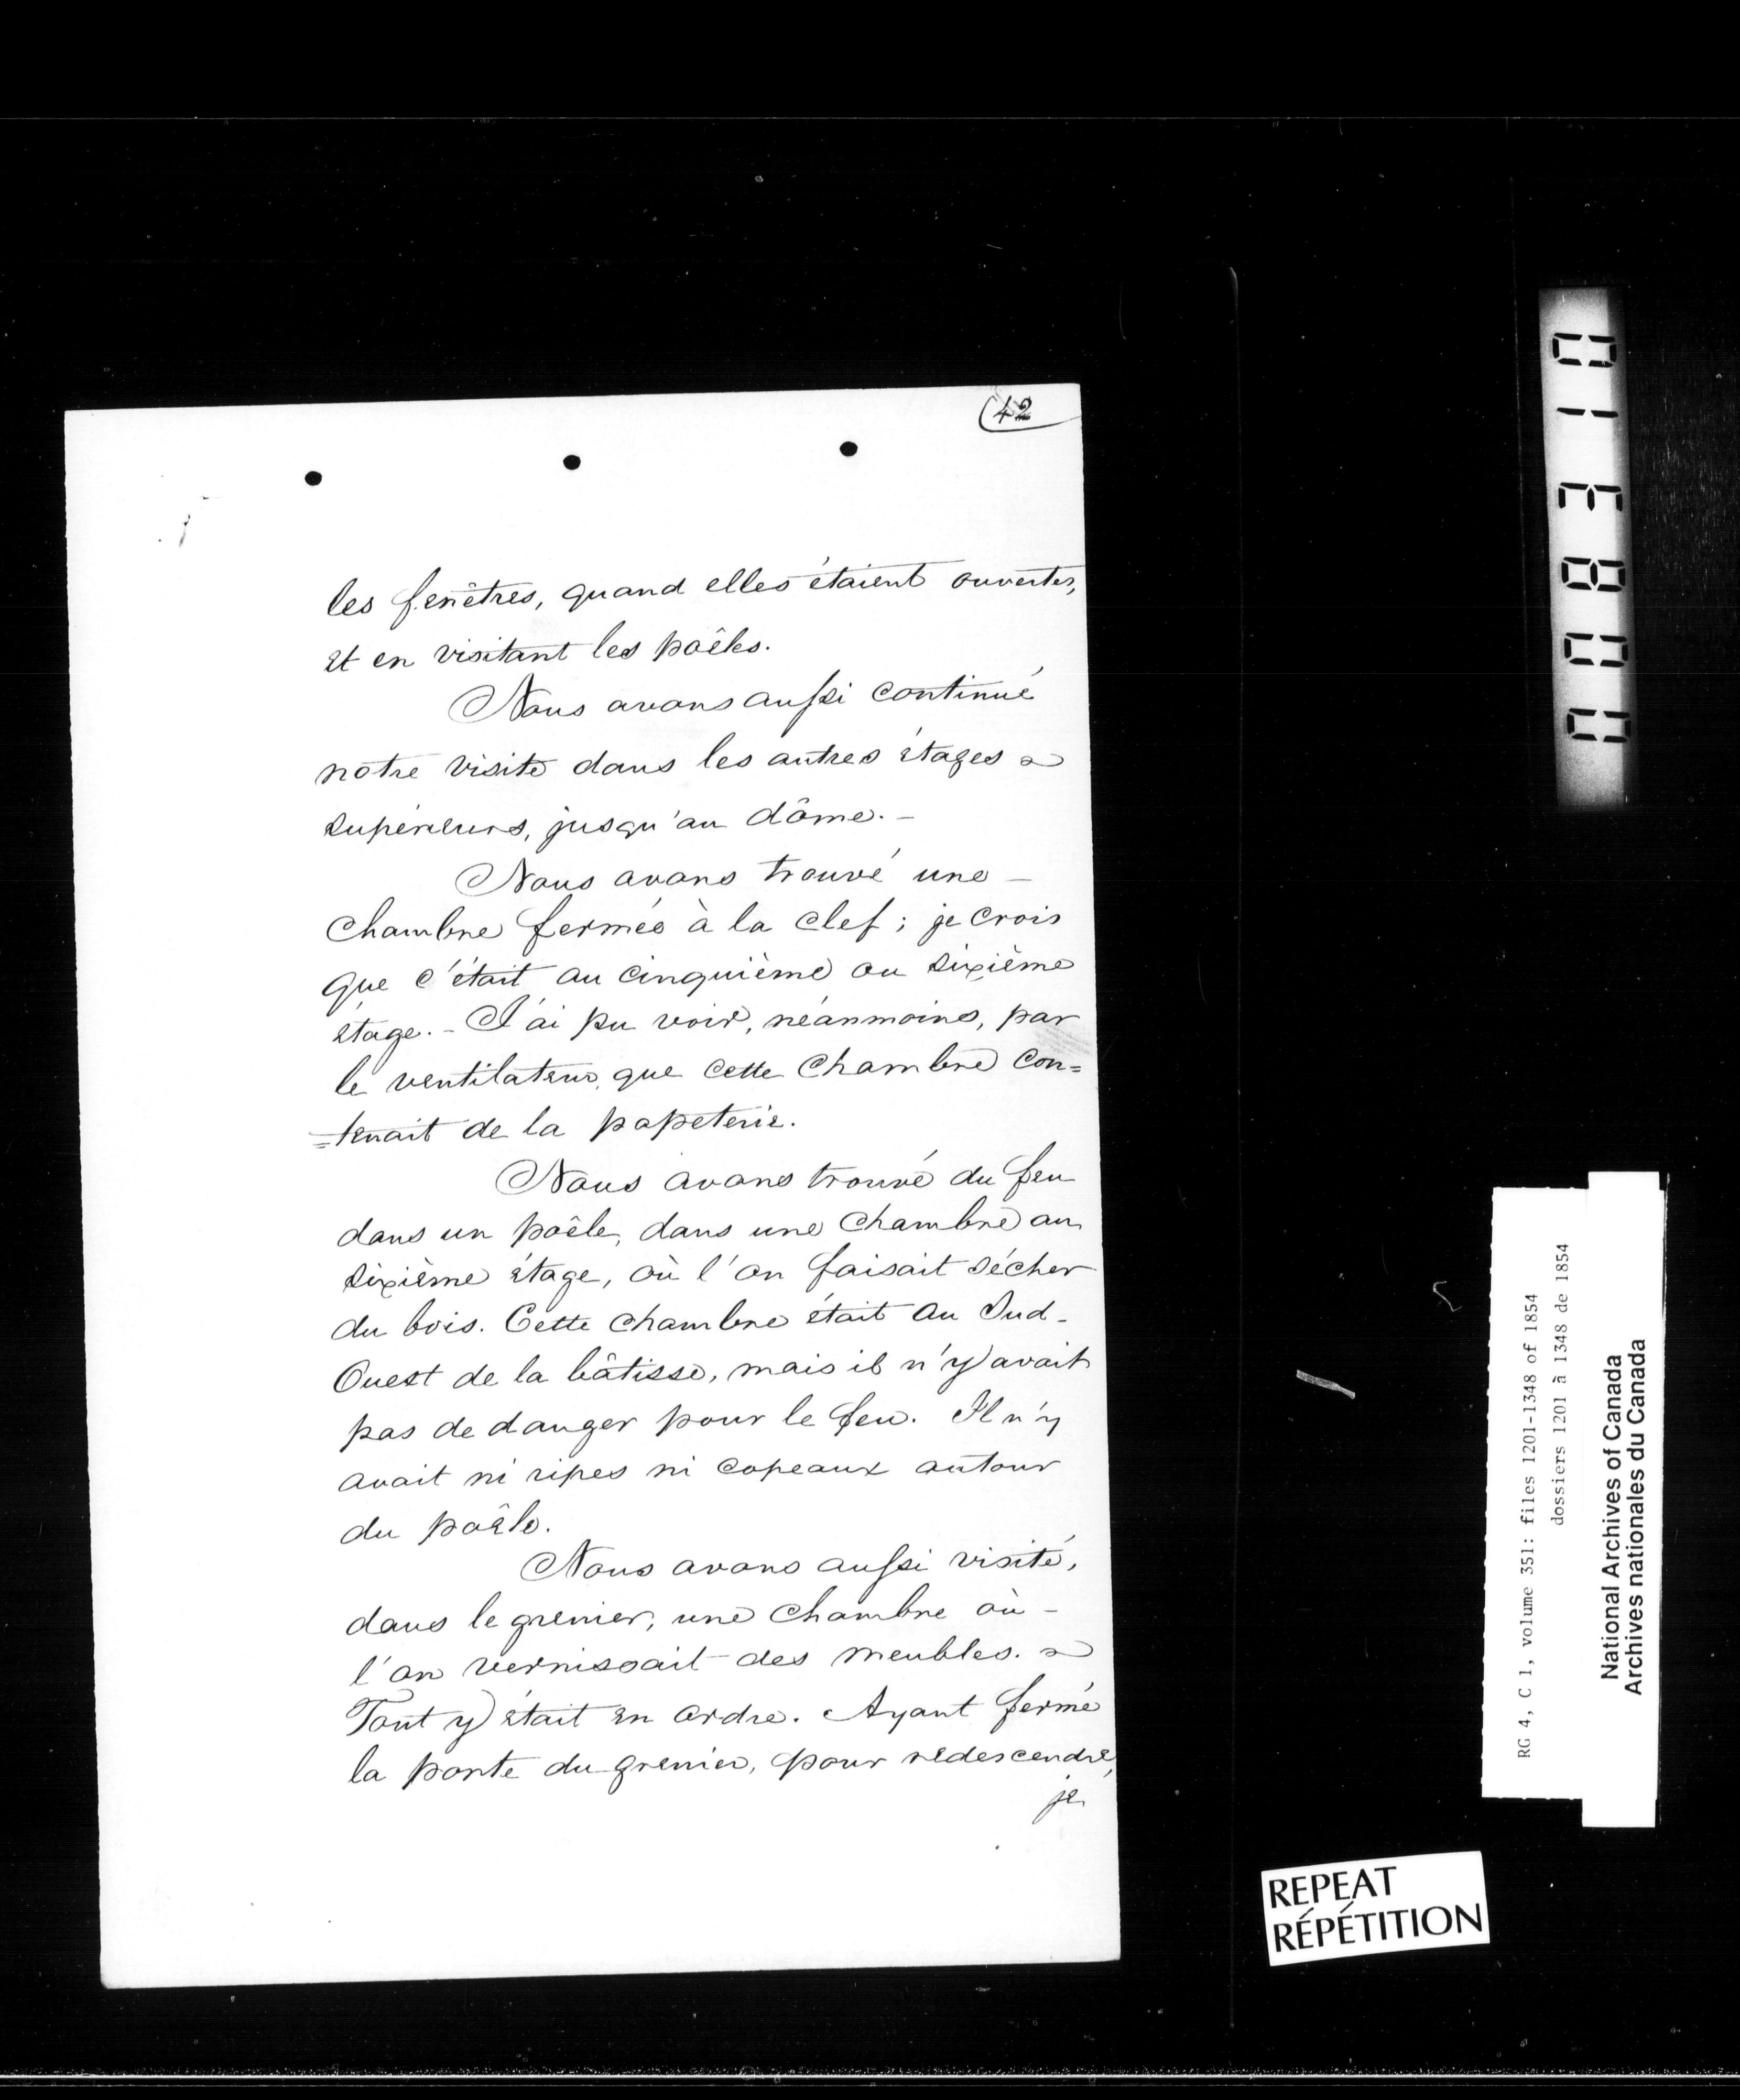 42
les fenêtres, quand elles étaient ouvertes,
et en visitant les poêles.
Nous avons aussi continué
notre visite dans les autres étages
supérieurs, jusqu'au dôme. -
Nous avons trouvé une -
chambre fermée à la clef ; je crois
que c'était au cinquième ou sixième
étage. - J'ai pu voir, néanmoins, par
le ventilateur, que cette chambre con=
=tenait de la papeterie.
Nous avons trouvé du feu
dans un poêle, dans une chambre au
sixième étage, où l'on faisait sécher
du bois. Cette chambre était au Sud-
Ouest de la bâtisse, mais il n'y avait
pas de danger pour le feu. Il n'y
avait ni ripes ni copeaux autour
du poêle.
Nous avons aussi visité,
dans le grenier, une chambre où -
l'on vernissait des meubles.
Tout y était en ordre. Ayant fermé
la porte du grenier, pour redescendre,
je
013800
RG 4, C 1, volume 351: files 1201-1348 of 1854
dossiers 1201 à 1348 de 1854
National Archives of Canada
Archives nationales du Canada
REPEAT
RÉPÉTITION